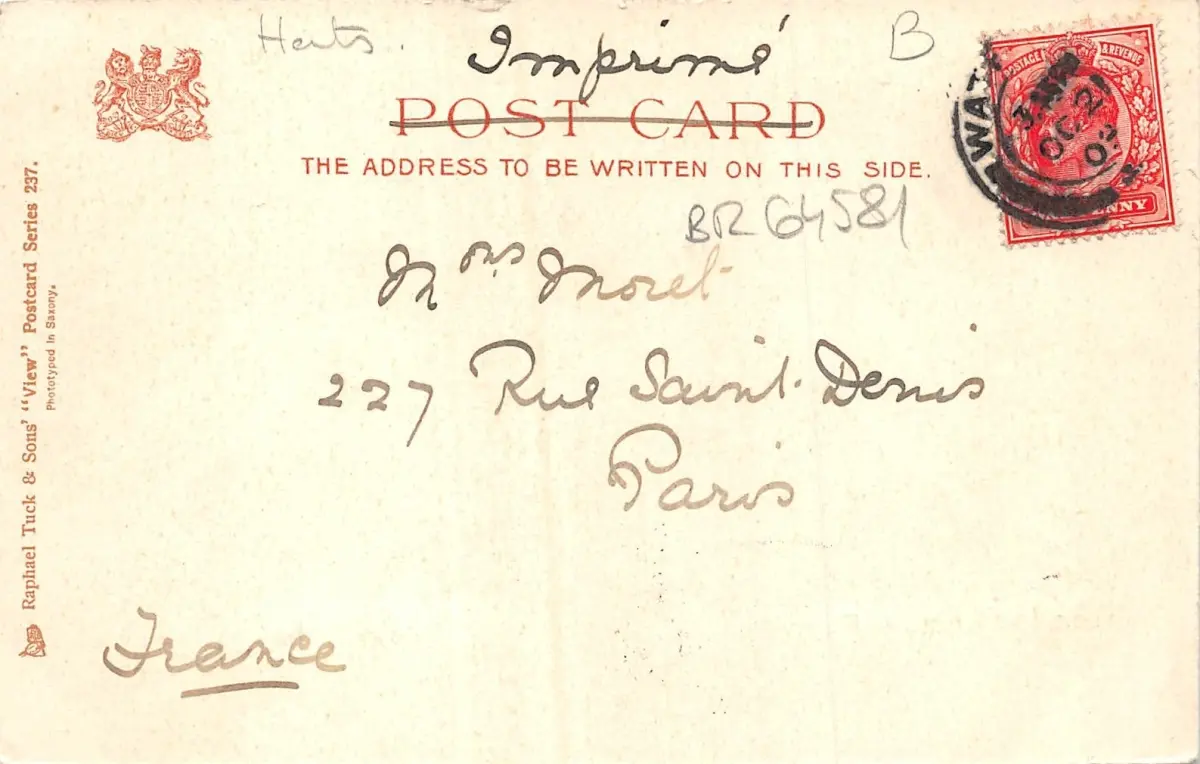 Herts.
Imprimé
B
POST CARD
THE ADDRESS TO BE WRITTEN ON THIS SIDE.
POSTAGE & REVENUE
OC 2
02
WAT
NNY
BR 64581
Mons Moret
227 Rue Saint-Denis
Paris
France
Raphael Tuck & Sons' "View" Postcard Series 237.
Phototyped in Saxony.